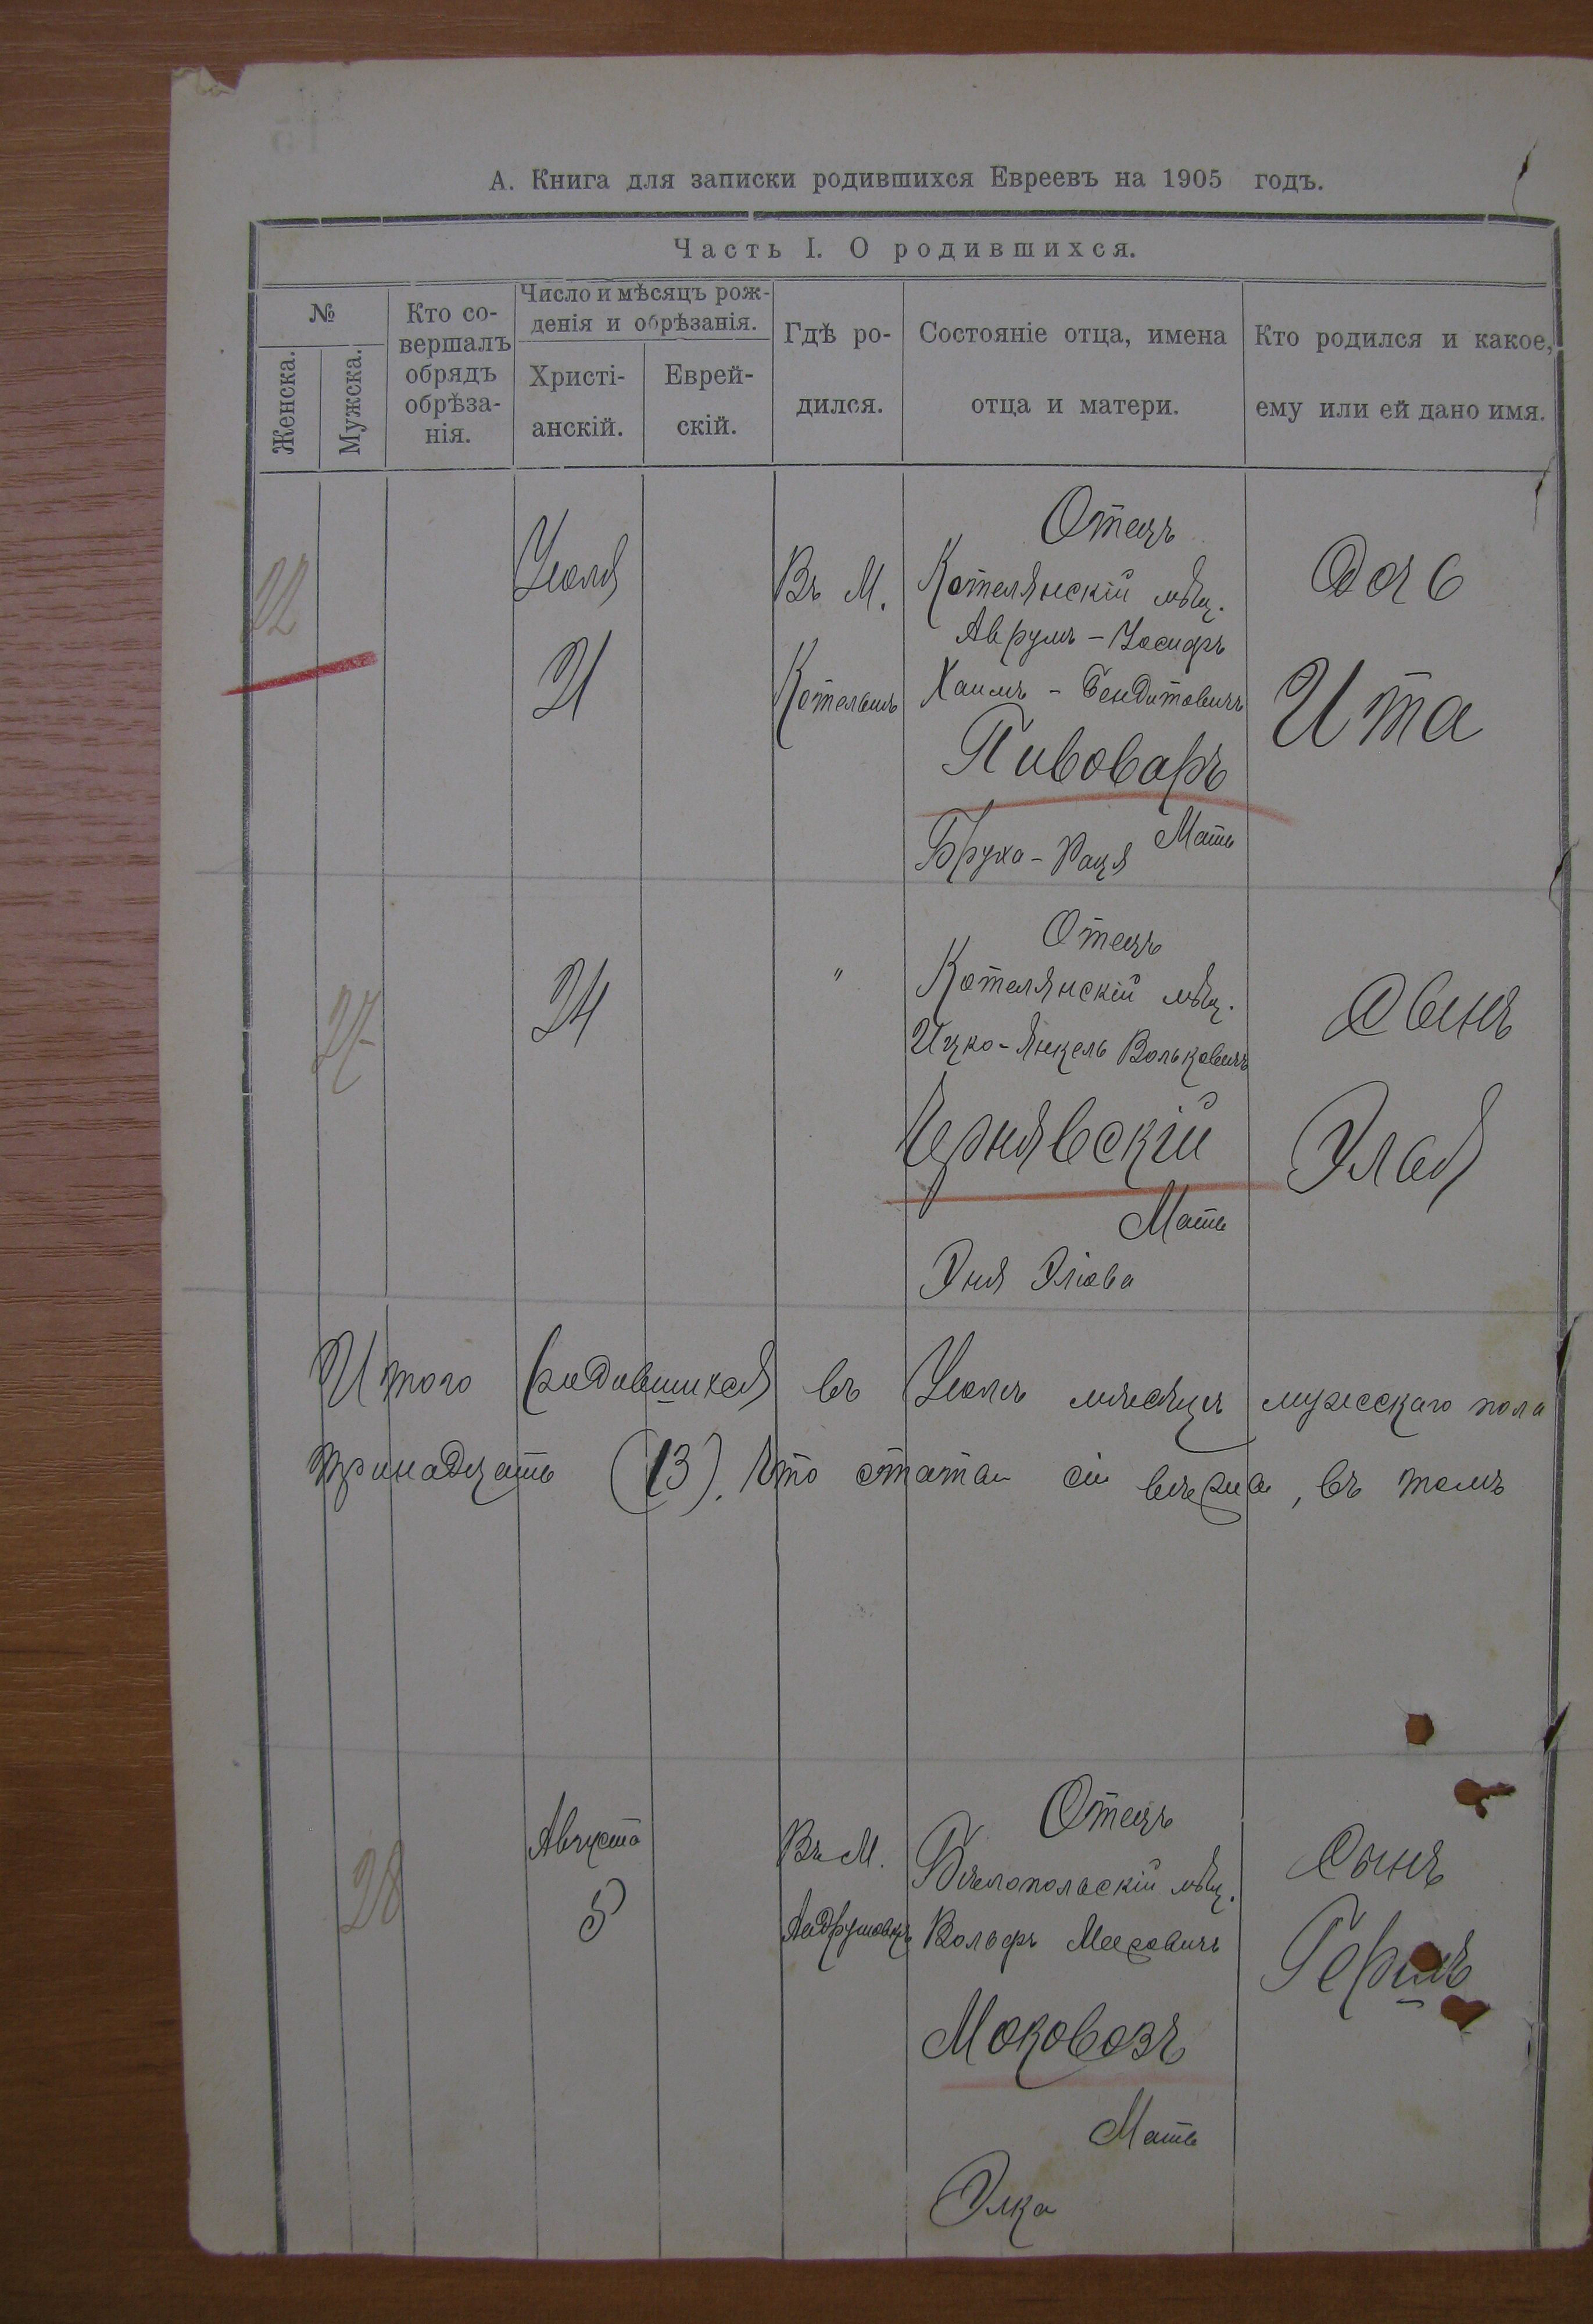 А. Книга для записки родившихся Евреевъ на 1905 годъ.
Часть I. О родившихся.
№
Женска.
Мужска.
Кто со-
вершалъ
обрядъ
обрѣза-
нія.
Число и мѣсяцъ рож-
денія и обрѣзанія.
Христі-
анскій.
Еврей-
скій.
Гдѣ ро-
дился.
Состояніе отца, имена
отца и матери.
Кто родился и какое,
ему или ей дано имя.
22
Июля
21
Въ М.
Котельнѣ
Отецъ
Котелянскій мѣщ.
Аврумъ-Иосифъ
Хаимъ-Бендитовичъ
Пивоваръ
Мать
Бруха-Рася
Дочь
Ита
27
24
"
Отецъ
Котелянскій мѣщ.
Ицко-Янкель Вольковичъ
Чернявскій
Мать
Эня Эліова
Сынъ
Элья
Итого родившихся въ Июлѣ мѣсяцѣ мужескаго пола
тринадцать (13). Что статьи сіи вѣрны, въ томъ
28
Августа
5
Въ М.
Андрушовкѣ
Отецъ
Бѣлопольскій мѣщ.
Вольфъ Мееровичъ
Моковозъ
Мать
Элка
Сынъ
Гершъ